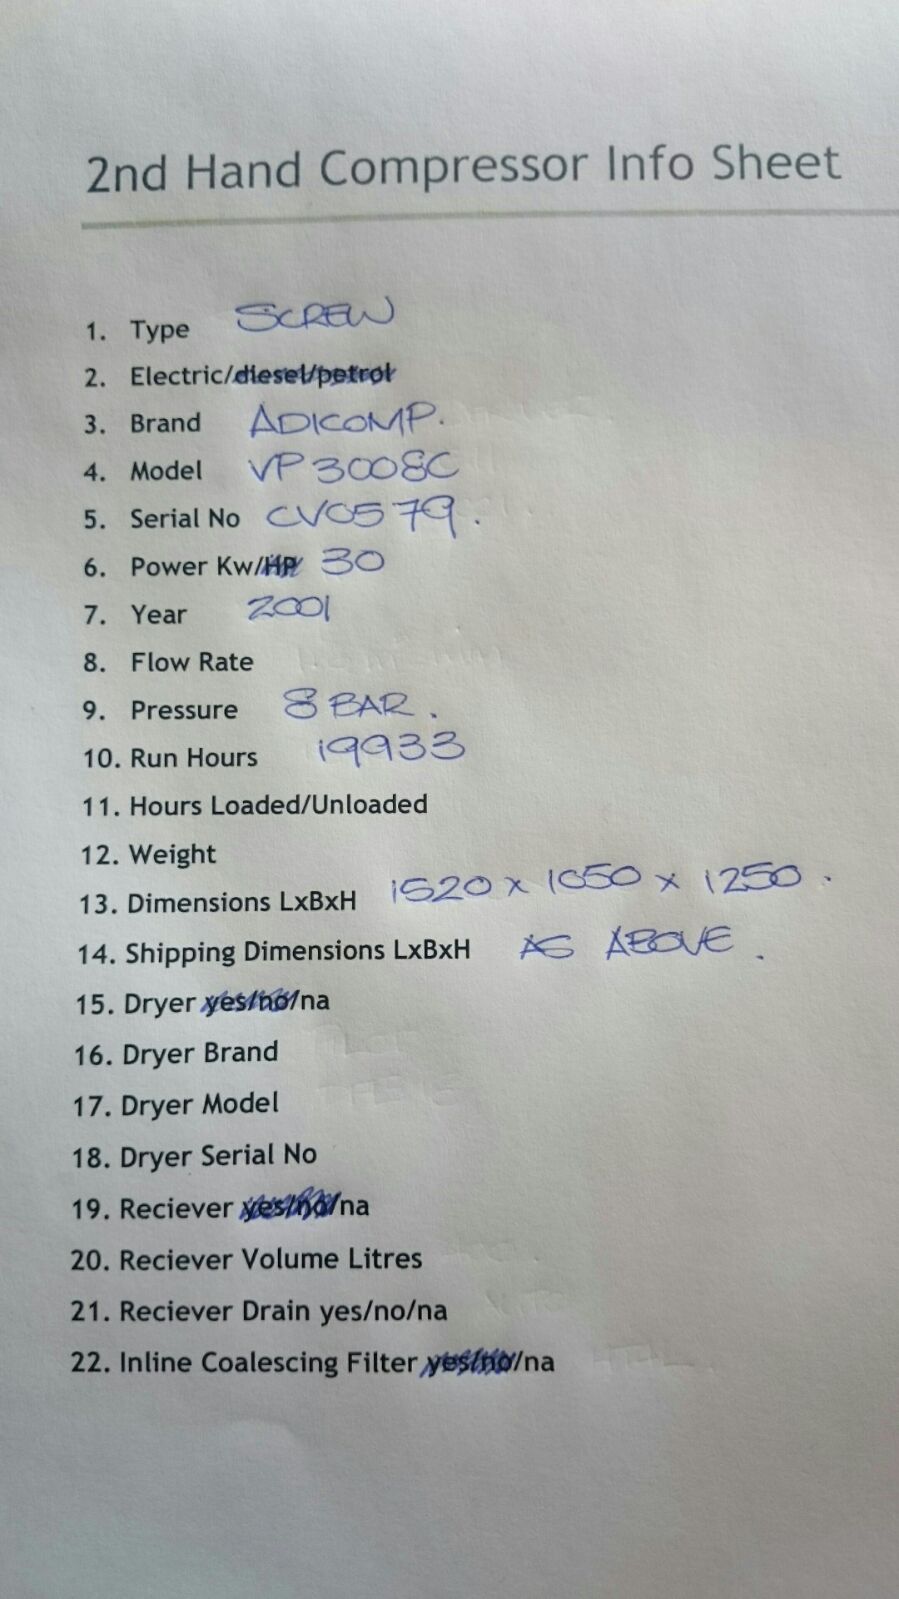 2nd Hand Compressor Info Sheet
1. Type SCREW
2. Electric/diesel/petrol
3. Brand ADICOMP.
4. Model VP3008C
5. Serial No CV0579.
6. Power Kw/HP 30
7. Year 2001
8. Flow Rate
9. Pressure 8 BAR.
10. Run Hours 19933
11. Hours Loaded/Unloaded
12. Weight
13. Dimensions LxBxH 1520 x 1050 x 1250.
14. Shipping Dimensions LxBxH AS ABOVE.
15. Dryer yes/no/na
16. Dryer Brand
17. Dryer Model
18. Dryer Serial No
19. Reciever yes/no/na
20. Reciever Volume Litres
21. Reciever Drain yes/no/na
22. Inline Coalescing Filter yes/no/na